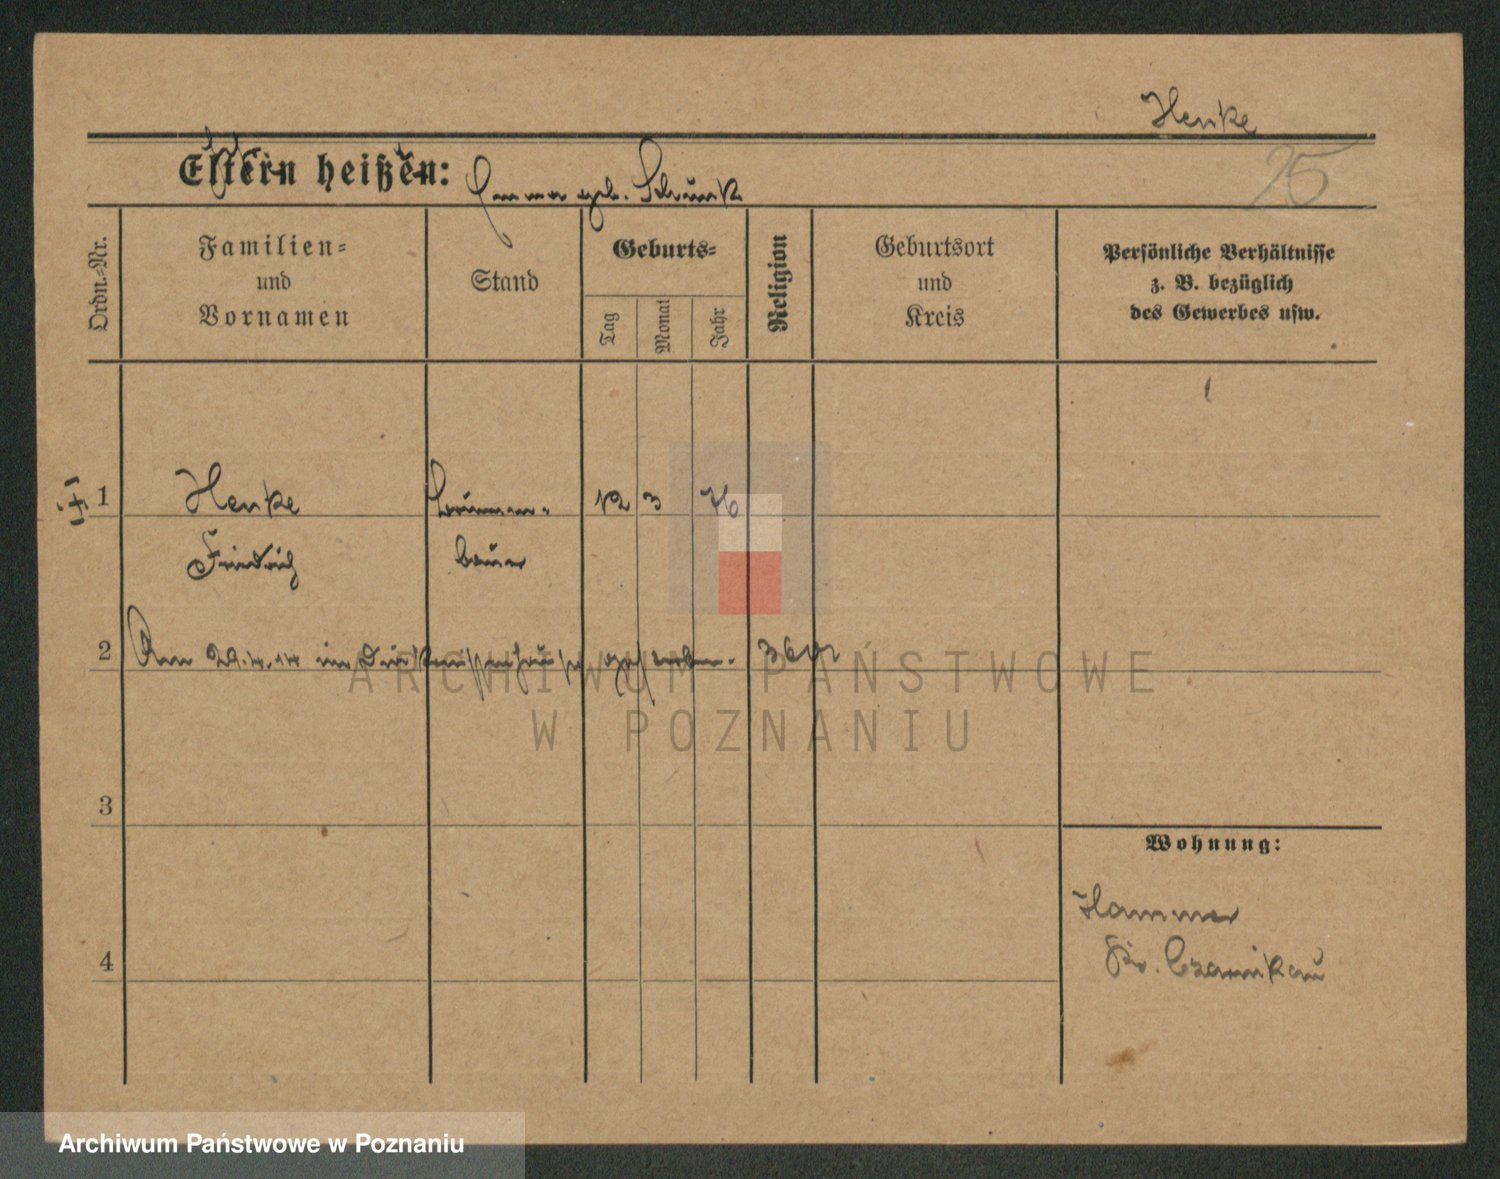 Henke
25
Eltern heißen: Emma geb. Schunk
Ordn.-Nr.
Familien-
und
Vornamen
Stand
Geburts-
Tag
Monat
Jahr
Religion
Geburtsort
und
Kreis
Persönliche Verhältnisse
z. B. bezüglich
des Gewerbes usw.
1 Henke Brunnen- 12 3 76
Friedrich bauer
2 Am 29.4.14 im gestorben.
3
4
Wohnung:
Hammer
Kr. Czarnikau
ARCHIWUM PAŃSTWOWE
W POZNANIU
Archiwum Państwowe w Poznaniu